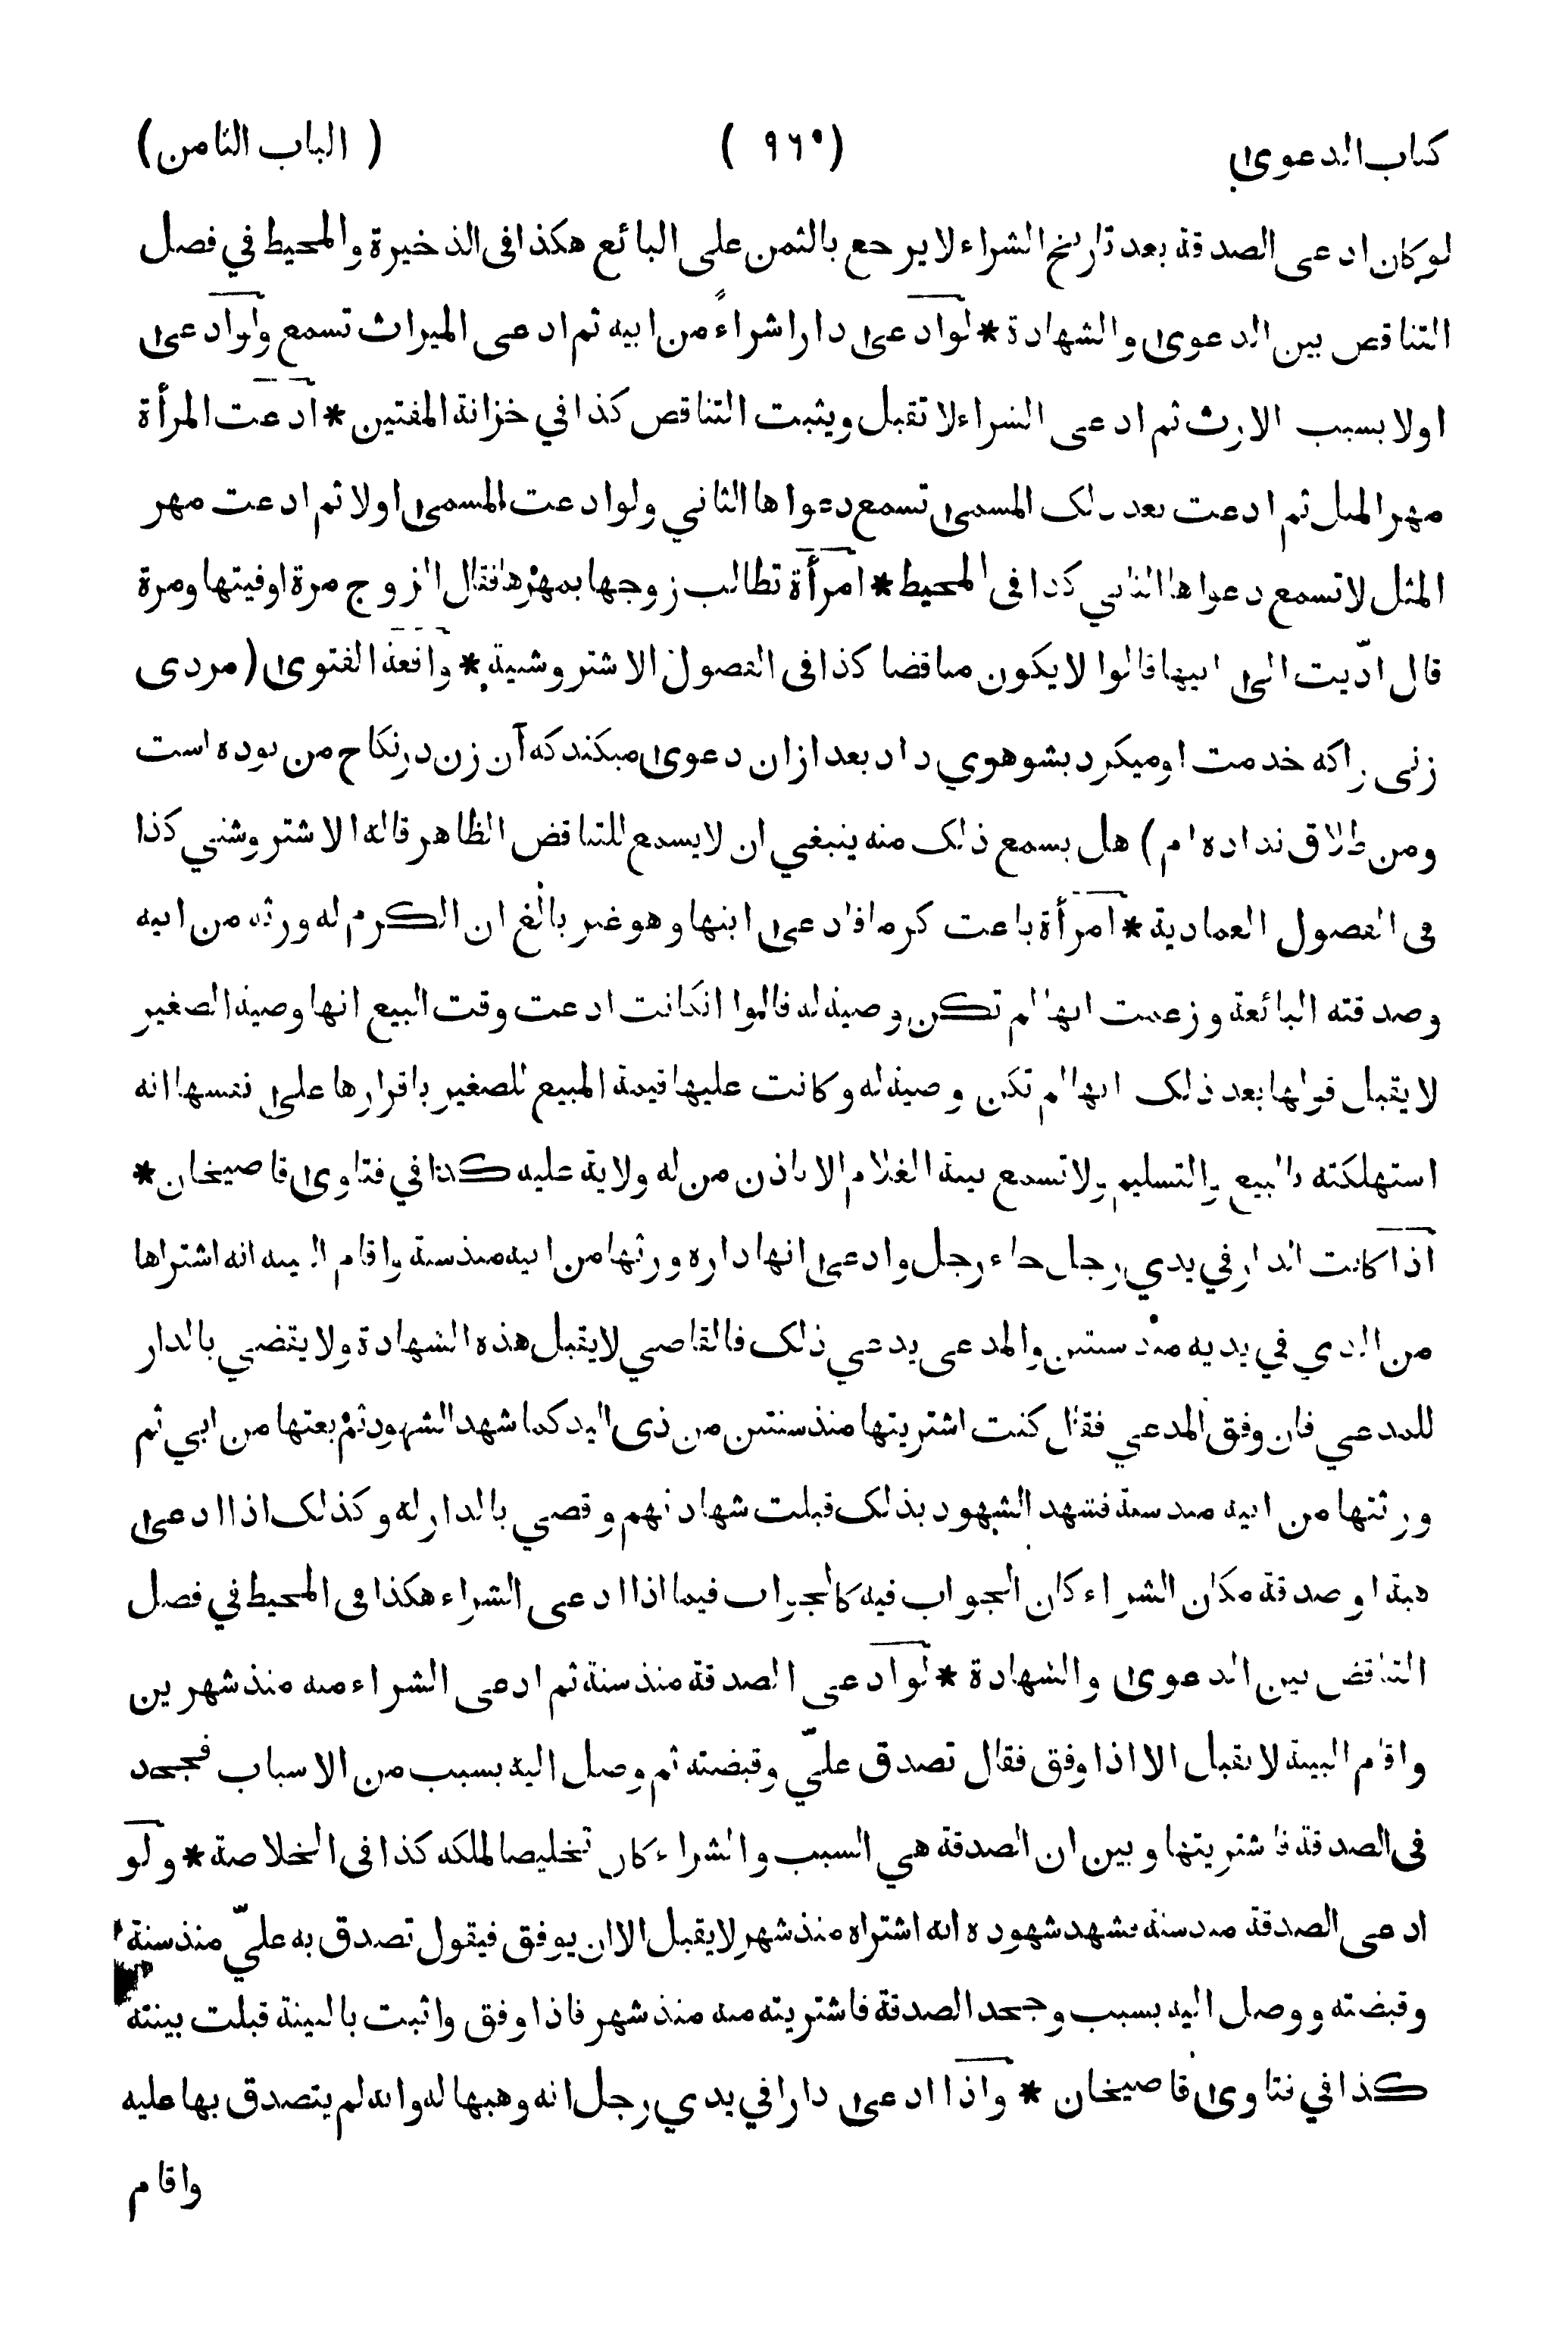 كتاب الدعوى (٩٦٠) (الباب الثامن)
لو كان ادعى الصدقة بعد تاريخ الشراء لا يرجع بالثمن على البائع هكذا في الذخيرة والمحيط في فصل
التناقص بين الدعوى والشهادة * لو ادعى دارا شراءً من ابيه ثم ادعى الميراث تسمع ولو ادعى
اولا بسبب الارث ثم ادعى الشراء لا تقبل ويثبت التناقص كذا في خزانة المفتين * ادعت المرأة
مهر المثل ثم ادعت بعد ذلك المسمى تسمع دعواها الثاني ولو ادعت المسمى اولا ثم ادعت مهر
المثل لا تسمع دعواها الثاني كذا في المحيط * امرأة تطالب زوجها بمهرها فقال الزوج مرة اوفيتها ومرة
قال ادّيت الى ابيها قالوا لا يكون مناقضا كذا في الفصول الاشتروشنية * واقعة الفتوى (مردى
زنى را كه خدمت او ميكرد بشوهوي داد بعد ازان دعوى ميكند كه آن زن در نكاح من بوده است
ومن طلاق نداده ام) هل يسمع ذلك منه ينبغي ان لا يسمع للتناقض الظاهر قاله الاشتروشني كذا
في الفصول العمادية * امرأة باعت كرما فادعى ابنها وهو غير بالغ ان الكرم له ورثه من ابيه
وصدقته البائعة وزعمت انها لم تكن وصية له قالوا ان كانت ادعت وقت البيع انها وصية الصغير
لا يقبل قولها بعد ذلك انها لم تكن وصية له وكانت عليها قيمة المبيع للصغير باقرارها على نفسها انه
استهلكته بالبيع والتسليم ولا تسمع بينة الغلام الا باذن من له ولاية عليه كذا في فتاوى قاضيخان *
اذا كانت الدار في يدي رجل جاء رجل وادعى انها داره ورثها من ابيه منذ سنة واقام البينه انه اشتراها
من الذي في يديه منذ سنتين والمدعى يدعي ذلك فالقاضي لا يقبل هذه الشهادة ولا يقضي بالدار
للمدعي فان وفق المدعي فقال كنت اشتريتها منذ سنتين من ذى اليد كما شهد الشهود ثم بعتها من ابي ثم
ورثتها من ابيه منذ سنة فشهد الشهود بذلك قبلت شهادتهم وقضي بالدار له وكذلك اذا ادعى
هبة او صدقة مكان الشراء كان الجواب فيه كالجواب فيما اذا ادعى الشراء هكذا في المحيط في فصل
التناقض بين الدعوى والشهادة * لو ادعى الصدقة منذ سنة ثم ادعى الشراء منه منذ شهرين
واقام البينة لا تقبل الا اذا وفق فقال تصدق عليّ وقبضته ثم وصل اليه بسبب من الاسباب فجحد
في الصدقة فاشتريتها وبين ان الصدقة هي السبب والشراء كان تخليصا لملكه كذا في الخلاصة * ولو
ادعى الصدقة منذ سنة فشهد شهوده انه اشتراه منذ شهر لا يقبل الا ان يوفق فيقول تصدق به عليّ منذ سنة
وقبضته ووصل اليه بسبب وجحد الصدقة فاشتريته منه منذ شهر فاذا وفق واثبت بالبينة قبلت بينته
كذا في فتاوى قاضيخان * واذا ادعى دارا في يدي رجل انه وهبها له وانه لم يتصدق بها عليه
واقام